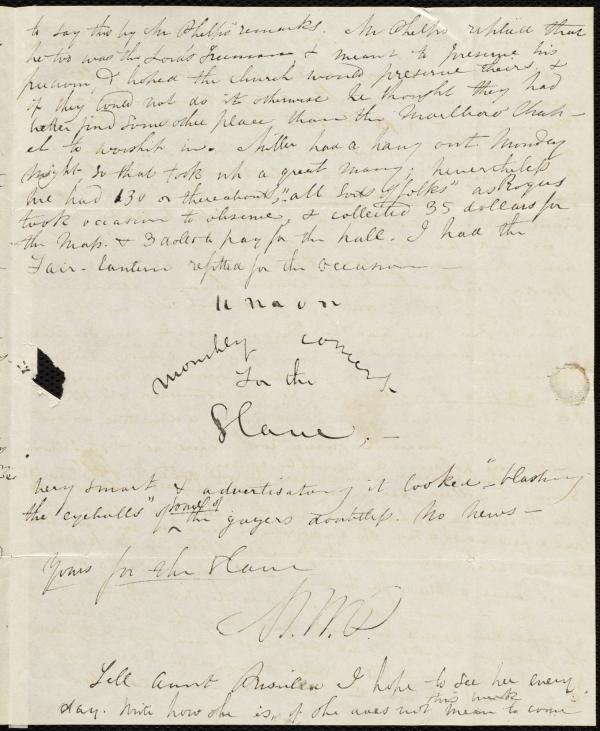 to say this by Mr Phelps' remarks. Mr Phelps replied that
he too was the Lord's Freeman, & meant to preserve his
freedom, & hoped the church would preserve theirs, &
if they could not do it otherwise he thought they had
better find some other place than the Marlboro' Chap-
el to worship in. Miller had a hang out Monday
night, so that took up a great many, nevertheless
we had 130 or thereabouts, "all sorts of folks" as Rogers
took occasion to observe, & collected 35 dollars for
the Mass. & 3 dolls to pay for the hall. I had the
Fair-lantern refitted for the occasion —
monthly concert
For the
Slave, —
very smart & advertisatory it looked, "blasting
the eyeballs" of some of the gazers doubtless. No news —
Yours for the Slave
Tell Aunt Priscilla I hope to see her every
day. Write how she is, if she does not mean to come
this week